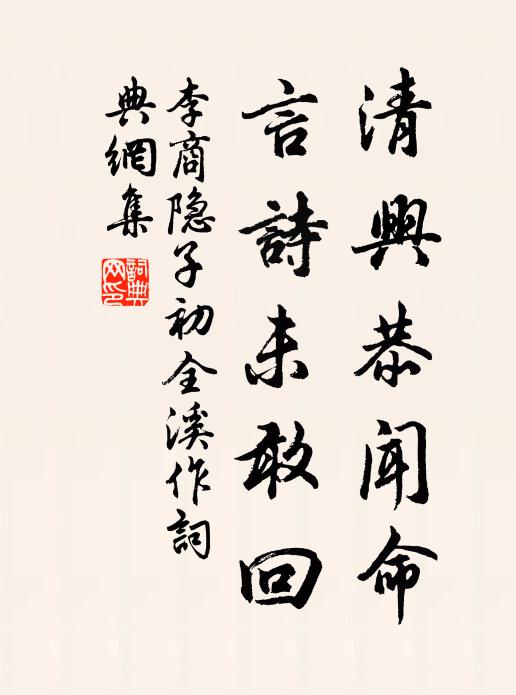 清興恭聞命
言詩未敢回
李商隐子初全溪作詞
典網集
詞典
网印